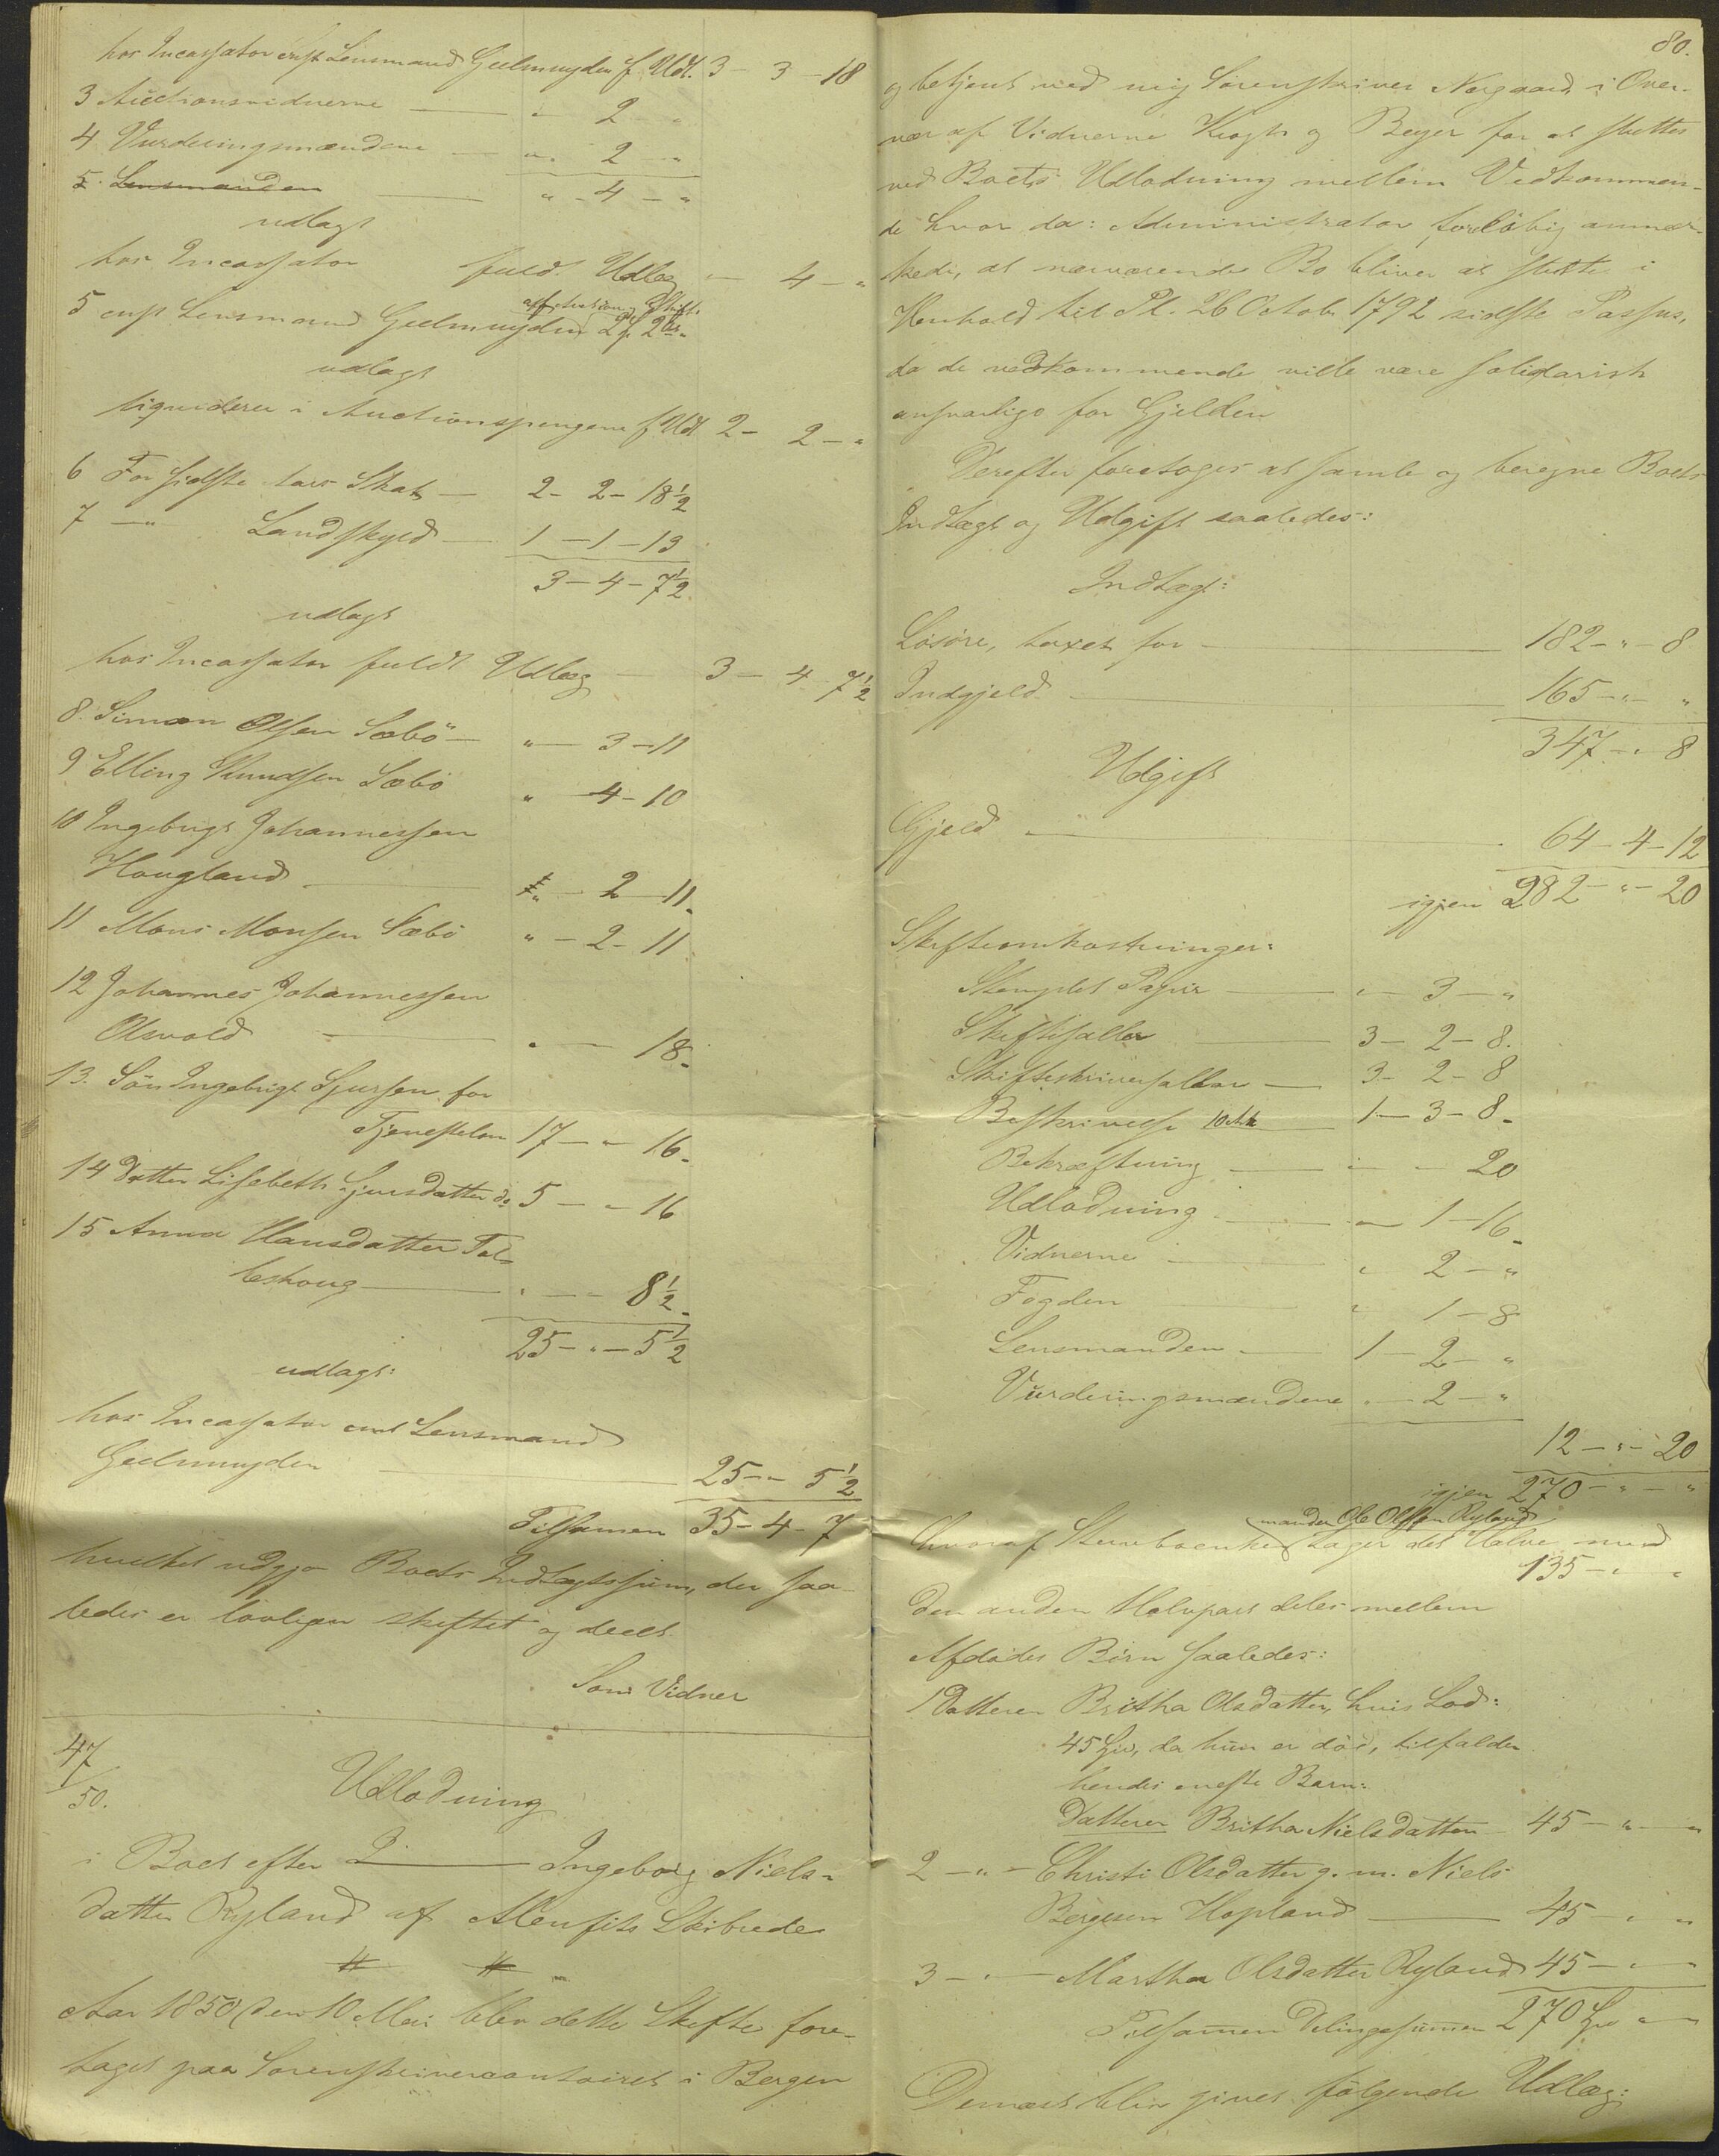 hos Incassator const Lensmand Geelmuyden f. Udl. 3 - 3 - 18
3 Auctionsvidnerne — " 2 "
4 Vurderingsmændene — " 2 - "
5. Lensmanden — " - 4 - "
udlagt
hos Incassator fuld. Udlæg — " - 4 - "
5 const Lensmand Geelmuyden
udlagt
liquiderer i Auctionspengene f. Udl 2 - 2 - "
6 For sidste Aars Skat — 2 - 2 - 18½
7 — " Landskyld — 1 - 1 - 13
3 - 4 - 7½
udlagt
hos Incassator fuldt Udlæg — 3 - 4 - 7½
8. Simon Olsen Sæbö — " - 3 - 11
9 Elling Knudsen Sæbö " 4 - 10
10 Ingebrigt Johannessen
Hougland — " - 2 - 11
11 Mons Monsen Sæbö " - 2 - 11
12 Johannes Johannessen
Olsvold — " - 18
13. Sön Ingebrigt Sjursen for
Tjenestelön 17 - " - 16
14 Datter Lisebeth Sjursdatter do 5 - " - 16
15 Anna Hansdatter
" - " - 8½
25 - " - 5½
udlagt:
hos Incassator const Lensmand
Geelmuyden — 25 - " 5½
Tilsamen 35 - 4 - 7
hvilket udgjør Boets Indtægtssum, der saa-
ledes er lovligen skiftet og deelt
Som Vidner
47/50.
Udlodning
i Boet efter Ingeborg Niels-
datter Ryland af Alenfits Skibrede
Aar 1850 den 10 Mai blev dette Skifte fore-
taget paa Sorenskrivercontoiret i Bergen
80.
og betjent ved mig Sorenskriver Norgaard, i Over-
vær af Vidnerne Krogh og Beyer for at sluttes
ved Boets Udlodning mellem Vedkommen-
de hvor da: Administrator foreløbig anmær-
kede, at nærværende Bo bliver at slutte i
Henhold til Pl. 26 Octobr 1792 sidste Passus,
da de vedkommende ville være solidarisk
ansvarlige for Gjelden
Derefter foretoges at samle og beregne Boets
Indtægt og Udgift saaledes:
Indtægt:
Løsøre, taxet for — 182 - " - 8
Indgjeld — 165 - " - "
347 - " - 8
Udgift
Gjeld — 64 - 4 - 12
igjen 282 - " - 20
Skifteomkostninger:
Stemplet Papir — " - 3 - "
Skiftesallær — 3 - 2 - 8.
Skifteskriversallær — 3 - 2 - 8
Beskrivelse 10 Ark — 1 - 3 - 8
Bekræftning — " - " - 20
Udlodning — " - 1 - 16
Vidnerne — " 2 - "
Fogden — " 1 - 8
Lensmanden — 1 - 2 - "
Vurderingsmændene " - 2 - "
12 - " - 20
igjen 270 - " - "
manden Ole Olssøn Ryland
hvoraf Sterboenke tager det Halve med
135 - " - "
Den anden Halvpart deles mellem
Afdødes Börn saaledes:
1 Datteren Britha Olsdatter, hvis Lod:
45 , da hun er död, tilfalder
hendes eneste Barn:
Datteren Britha Nielsdatter — 45 - " - "
2 — " — Christi Olsdatter g. m. Niels
Børgesen Hopland — 45 - " - "
3 — " — Martha Olsdatter Ryland 45 - " - "
Tilsamen Delingssummen 270 " - "
Dernæst blev givet følgende Udlæg: